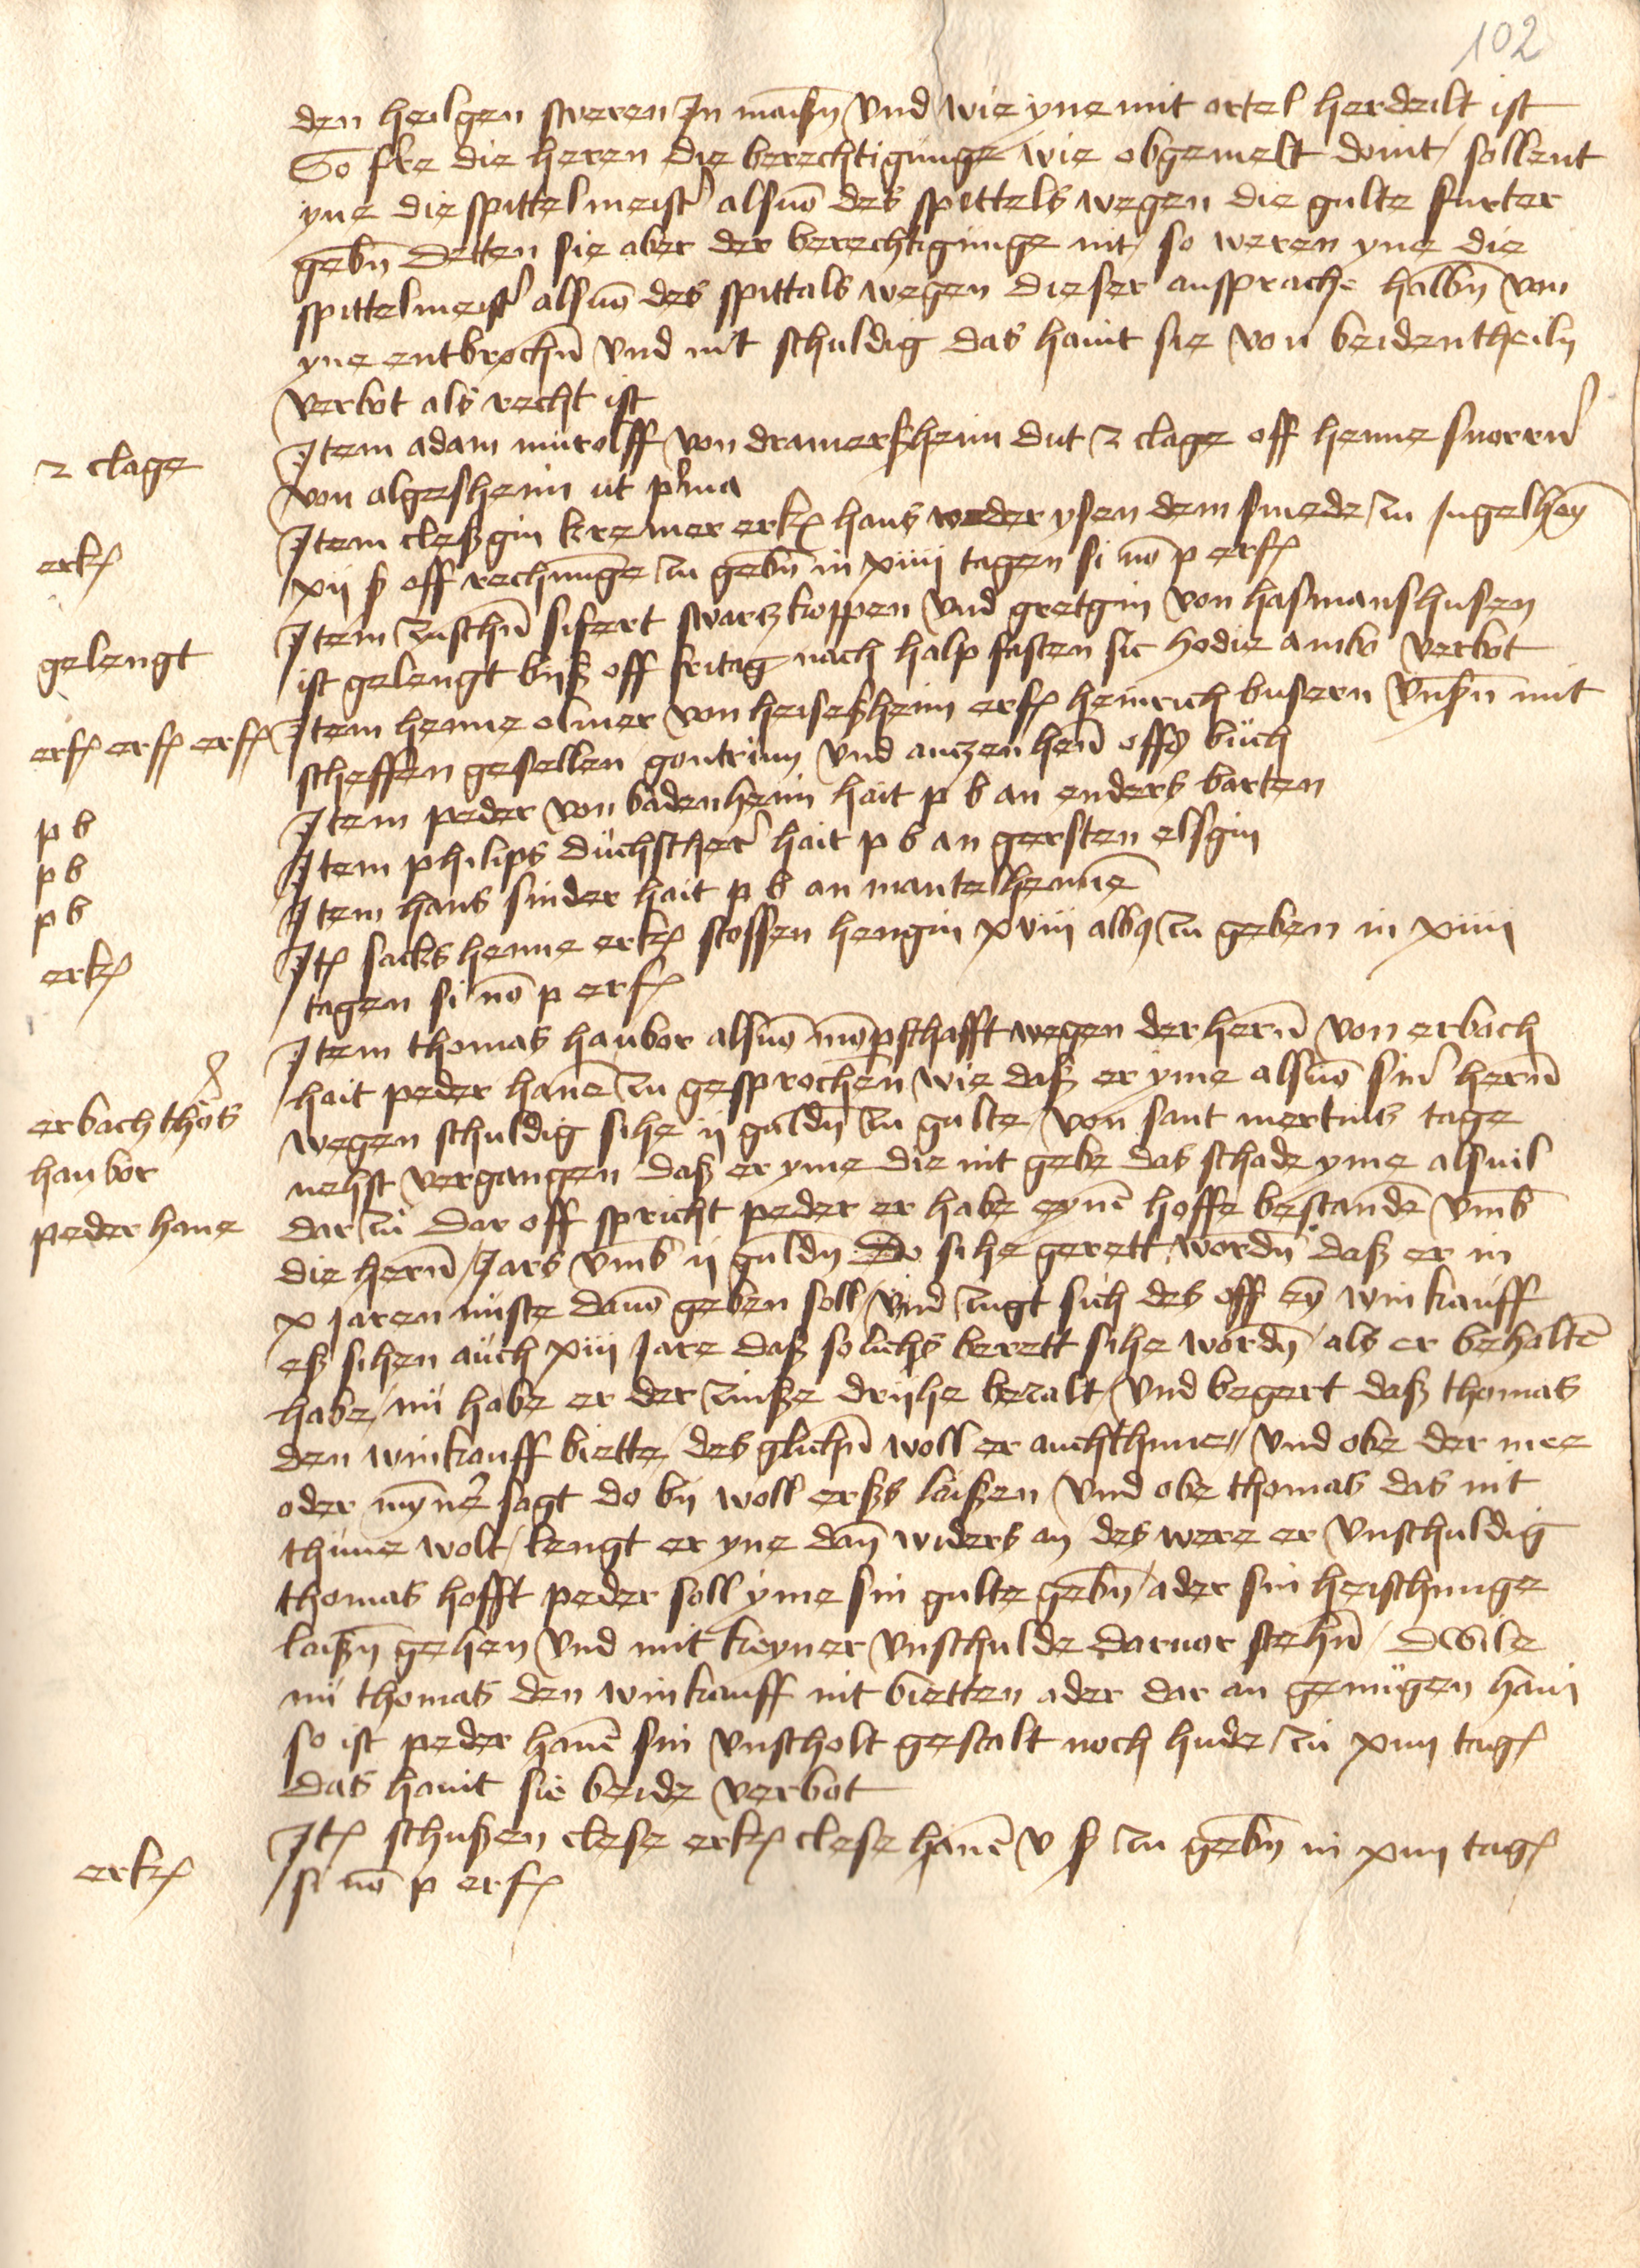 102
den heilgen sweren Jn maiß̄n vnd wie yne mit ortel herdeilt ist
So ſie die heren die berechtigunge wie obgemelt doint / sollent
yne die spittelmeist' alsūo des spittels wegen die gulte furter
geb̄n Detten sie aber der berechtigunge nit / so weren yne die
spittelmeist' alsūo des spittals wegen dieser ansprache halb̄n von
yne entbroch̄n vnd nit schuldig das haint sie von beidentheiln
verbot als recht ist
2 clage
Jtem adam mūrolff von dramerßheim dut 2 clage off henne snorrn'
von algeßheim ut p'ma
erkꝭ
Jtem cleßgin kremer erkꝭ hans weder ysen dem smede zu Jngelhey̅
xij ß off rechnu̅ge zu geb̄n in xiiij tagen si nō p erfꝭ
gelengt
Jtem zusch̄n sifert swarzkoppen vnd gretgin von hasmanshusen
ist gelengt biß off fritag nach halp fasten sic hodie ambo verbot
erfꝭ erfꝭ erfꝭ
Jtem henne olmer von heiseßheim erfꝭ heinrich busern vnß̄n mit
scheffen gesellen gontrum vnd anczen hen̄ offꝭ buch
p b
Jtem peder von badenheim hait p b an enders barten
p b
Jtem philips duchscher' hait p b an gersten elsgin
p b
Jtem hans sinder hait p b an mantel hen̄ne
erkꝭ
Jtꝭ sacks henne erkꝭ stoffen hengin xviij albꝭ zu geben in xiiij
tagen si nō p erfꝭ
Jtem thomas haubor alsūo mo̅pschafft wegen der her̄n von erbach
hait peder han̄e zu gesprochen wie daß er yme alsūo sin' her̄n
erbach tho̅s
haubor
peder hane
wegen schuldig sihe ij guld̄n zu gulte / von sant mertins tage
nehst vergangen daß er yme die nit gebe das schade yme alsuil
dar zu Dar off spricht peder er habe eyn̄e hoffe bestand̄e vmb̄
die her̄n / Jars vmb̄ ij guld̄n Do sihe gerett word̄n daß er in
x jaren miste dauō geben soll / vnd zugt sich des off ey̅ winkauff
eß sihen auch xiij Jare daß solichs berett sihe word̄n / als er behalt̄e
habe / nu habe er der zinße drijhe bezalt / vnd begert daß thomas
den winkauff biette / des glich̄n woll er auch thune // vnd obe der mee
oder my̅ne' sagt do bij woll erßs laißen / vnd obe thomas das nit
thune wolt / lengt er yne dan̄ widers an des were er vnschuldig
thomas hofft peder soll yme sin gulte geb̄n / ader sin heischunge
laiß̄n gehen vnd mit keyner vnschulde daruor steh̄n / dwile
nu thomas den winkauff nit bietten ader dar an genugen han̄
so ist peder han̄e sin vnscholt gestalt noch hude zu xiiij tagꝭ
das haint sie beide verbot
erkꝭ
Jtꝭ schußen clese erkꝭ clese han̄e v ß zu geb̄n in xiiij tagꝭ
si nō p erfꝭ